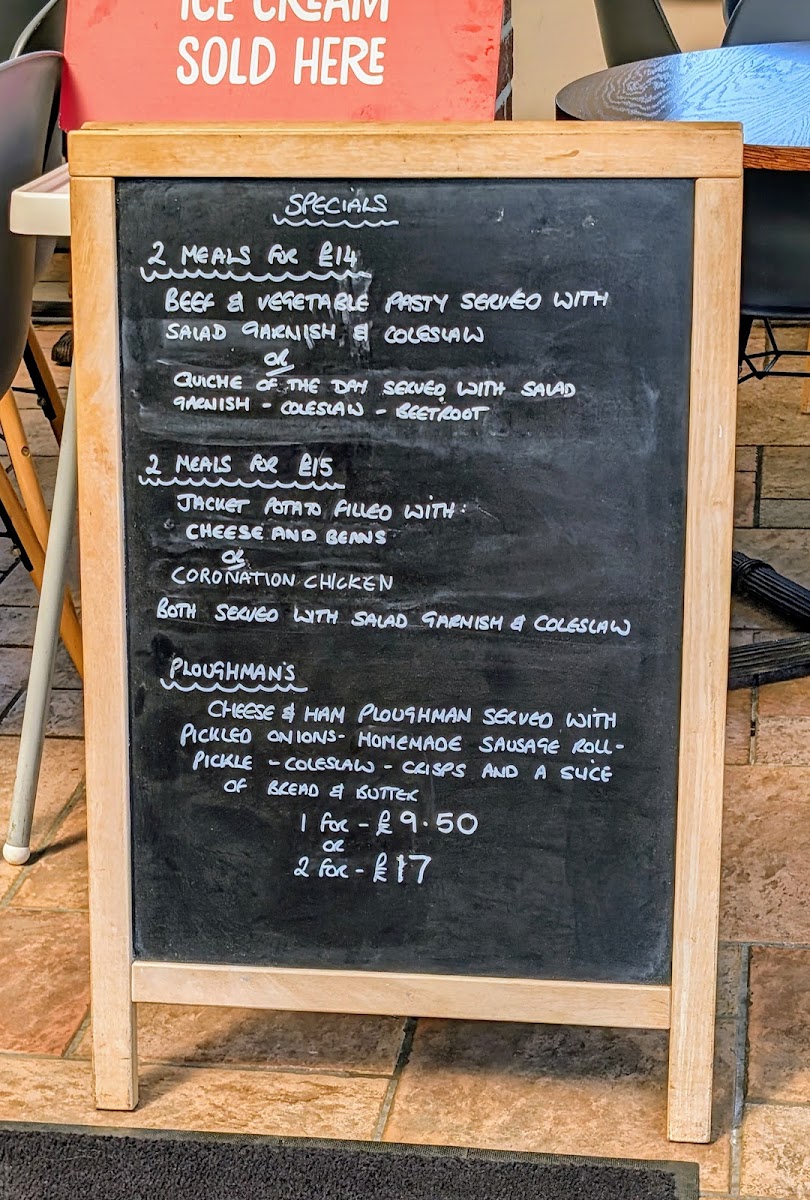 ICE CREAM
SOLD HERE
SPECIALS
2 MEALS FOR £14
BEEF & VEGETABLE PASTY SERVED WITH
SALAD GARNISH & COLESLAW
OR
QUICHE OF THE DAY SERVED WITH SALAD
GARNISH - COLESLAW - BEETROOT
2 MEALS FOR £15
JACKET POTATO FILLED WITH:
CHEESE AND BEANS
OR
CORONATION CHICKEN
BOTH SERVED WITH SALAD GARNISH & COLESLAW
PLOUGHMAN'S
CHEESE & HAM PLOUGHMAN SERVED WITH
PICKLED ONIONS- HOMEMADE SAUSAGE ROLL-
PICKLE - COLESLAW - CRISPS AND A SLICE
OF BREAD & BUTTER
1 FOR - £9.50
OR
2 FOR - £17